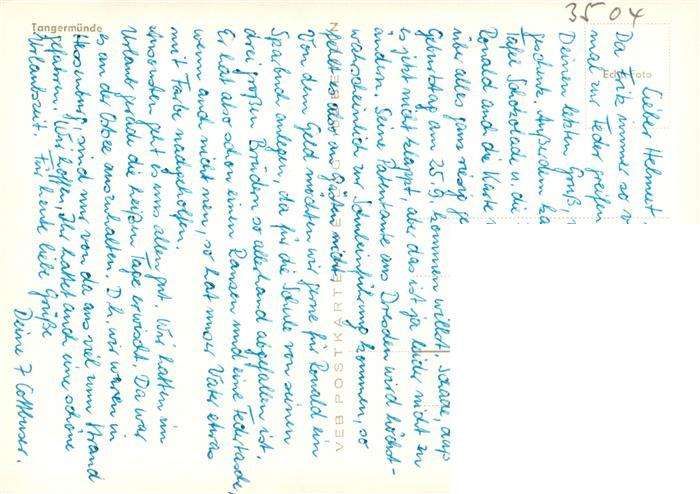 3504
Tangermünde
Echt Foto
VEB POSTKARTE
Lieber Helmut,
Da Fritz immer so v
mal zur Feder greifen
Deinen letzten Gruß,
geschenk. Außerdem ka
Tafel Schokolade u. die
Ronald und die Karte
über alles ganz riesig ge
Geburtstag am 25.9. kommen willst. Schade, aus
es jetzt nicht klappt, aber das ist ja leider nicht zu
ändern. Seine Patentante aus Dresden wird höchst-
wahrscheinlich zur Schuleinführung kommen, so
fehlt es also an Gästen nicht.
Von dem Geld möchten wir gerne für Ronald ein
Sparbuch anlegen, da für die Schule von seinen
drei großen Brüdern so allerhand abgefallen ist.
Er hat also schon einen Ranzen und eine Federtasche,
wenn auch nicht neu, so hat unser Vater etwas
mit Farbe nachgeholfen.
Ansonsten geht es uns allen gut. Wir hatten im
Urlaub gerade die heißen Tage erwischt. Da war
es an der Ostsee auszuhalten. D.h. wir waren in
sind wir von da aus viel zum Strand
gefahren. Wir hoffen, Ihr hattet auch eine schöne
Urlaubszeit. Für heute liebe Grüße
Deine 7 Cottbuser.